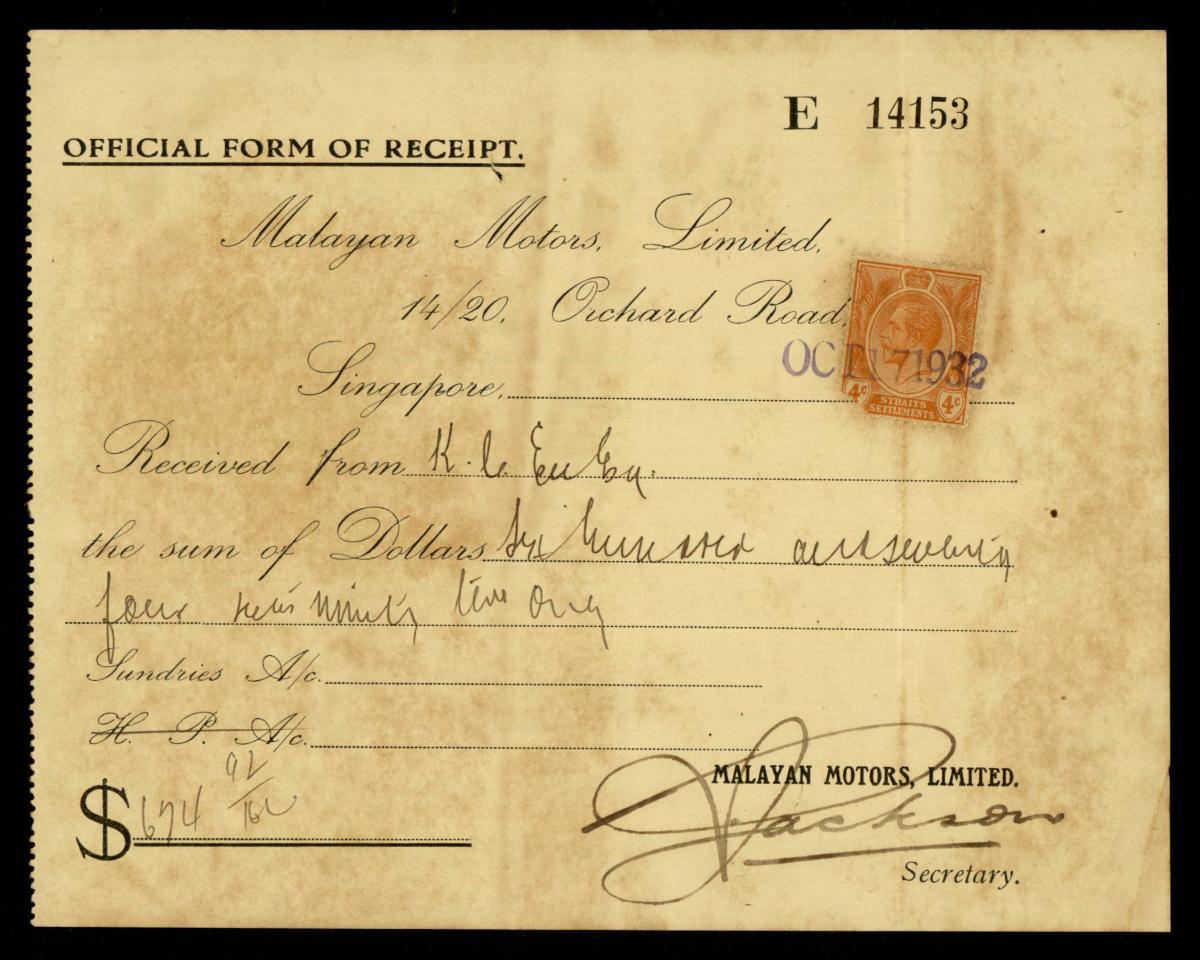 E 14153
OFFICIAL FORM OF RECEIPT.
Malayan Motors, Limited,
14/20, Orchard Road,
Singapore, OCT 17 1932
4c STRAITS SETTLEMENTS 4c
Received from K. C. Eu Esq.
the sum of Dollars Six hundred and seventy
four cents ninety two only
Sundries A/c.
H. P. A/c.
$ 674 92/100
MALAYAN MOTORS, LIMITED.
Jackson
Secretary.